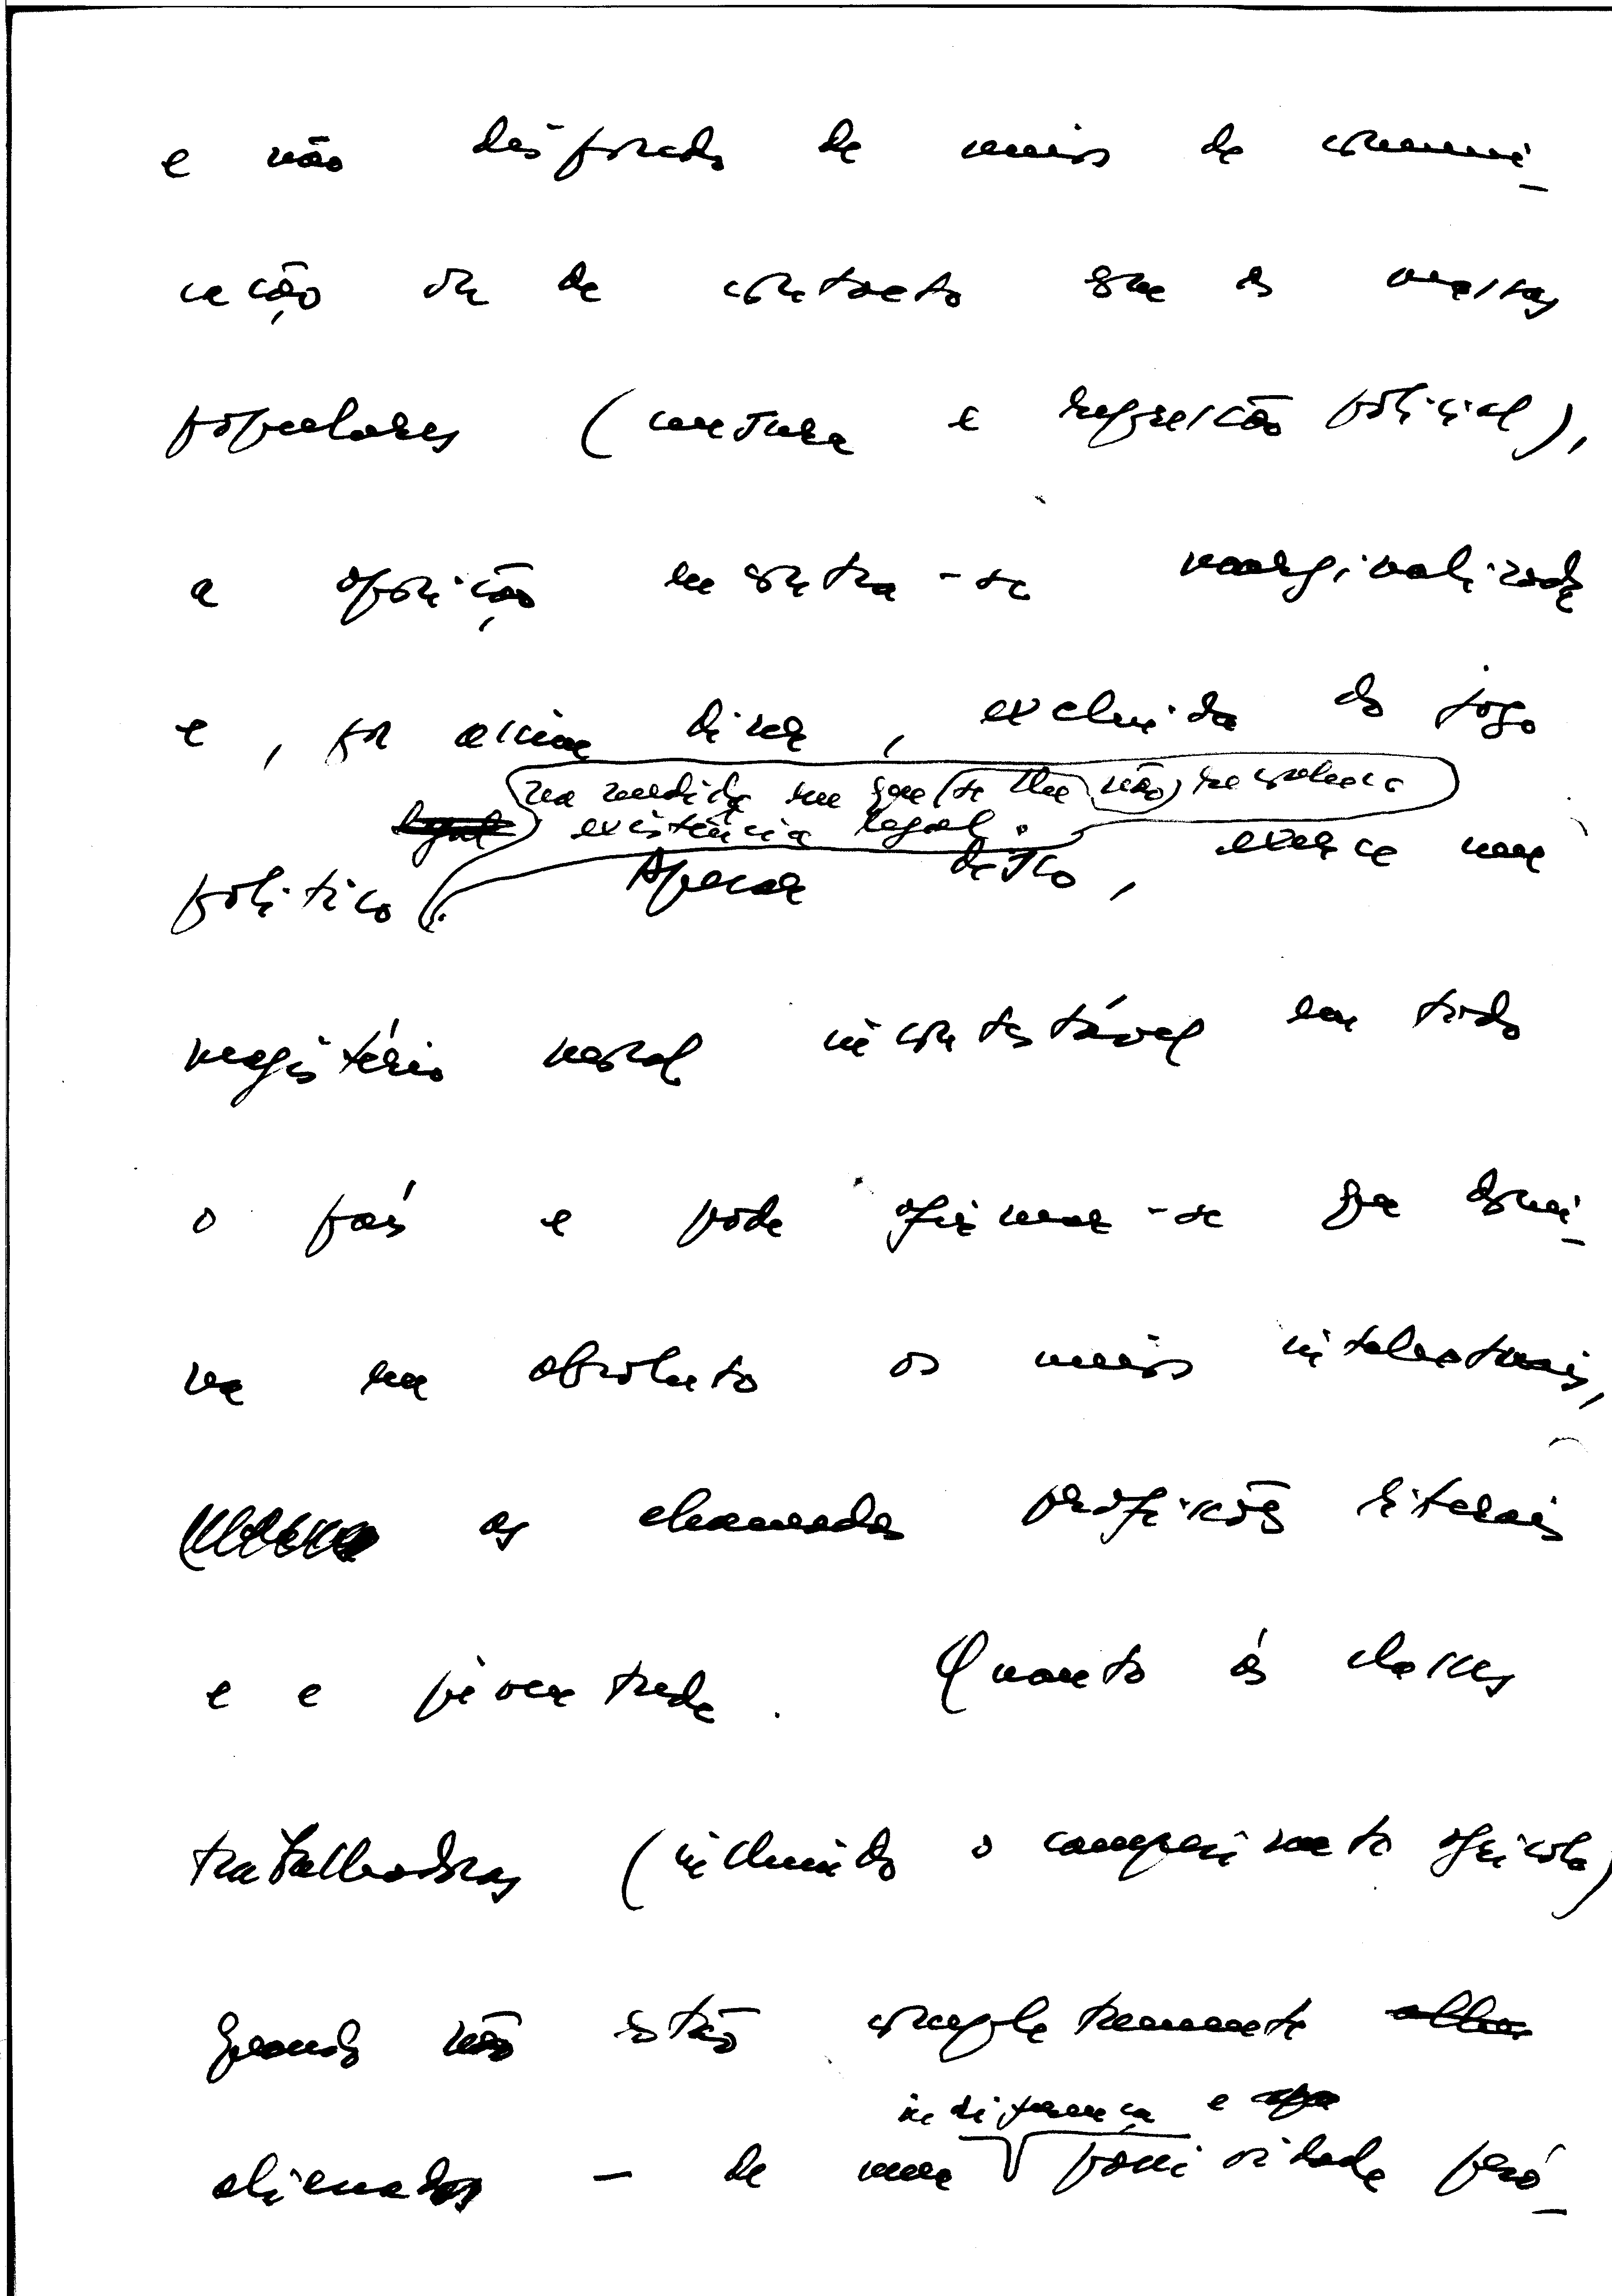 e não disfondo de meios de comuni-
cação ou de contacto com as massas
populares (censura e repressão policial),
a oposição encontra-se marginalizada
e, por assim dizer, excluida do jogo
na medida em que (se lhe não) reconhece
existência legal.
politico. Apesar disso, exerce um
magistério moral incontestável em todo
o país e pode afirmar-se que domi-
na em absoluto os meios intelectuais,
as chamadas profissões liberais
e a juventude. Quanto às classes
trabalhadoras (incluindo o campesinato agrícola)
quando não estão completamente
indiferença e
alienadas – de uma passividade pró-